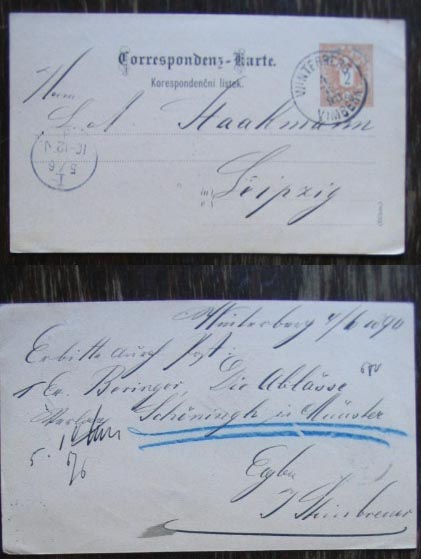 Correspondenz-Karte.
Korespondenční lístek.
2
WINTERBERG
VIMPERK
Herrn
L. A. Staakmann
Leipzig
5 7 6
10-12 V
Winterberg 4/6 1890
Erbitte durch Post:
1 Ex. Beringer, Die Ablässe
Schöningh in Münster
5.
/6
J Steinbrener